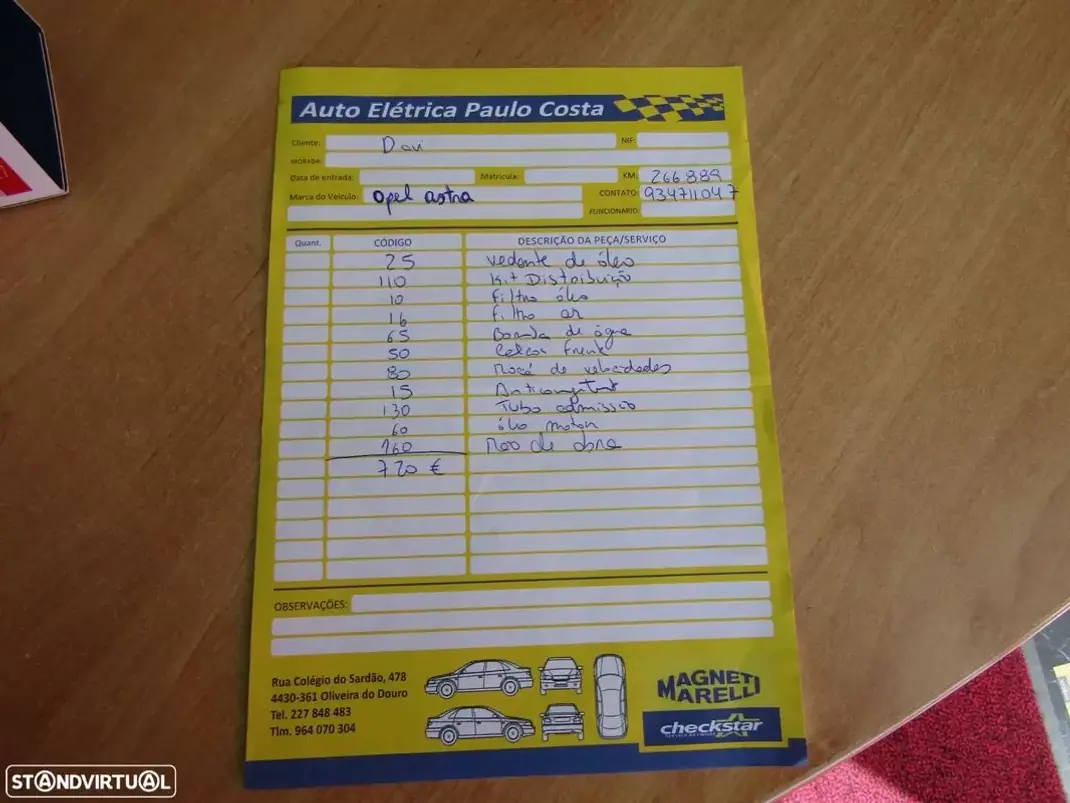 Auto Elétrica Paulo Costa
Cliente: Davi NIF:
MORADA:
Data de entrada: Matrícula: KM: 266.889
Marca do Veículo: Opel astra CONTATO: 934711047
FUNCIONARIO:
Quant. CÓDIGO DESCRIÇÃO DA PEÇA/SERVIÇO
25 vedante de óleo
110 Kit Distribuição
10 filtro óleo
16 filtro ar
65 Bomba de água
50 Calços frente
80 de velocidades
15
130 Tubo admissão
60 óleo motor
160 Mao de obra
720 €
OBSERVAÇÕES:
Rua Colégio do Sardão, 478
4430-361 Oliveira do Douro
Tel. 227 848 483
Tlm. 964 070 304
MAGNETI
MARELLI
checkstar
STANDVIRTUAL